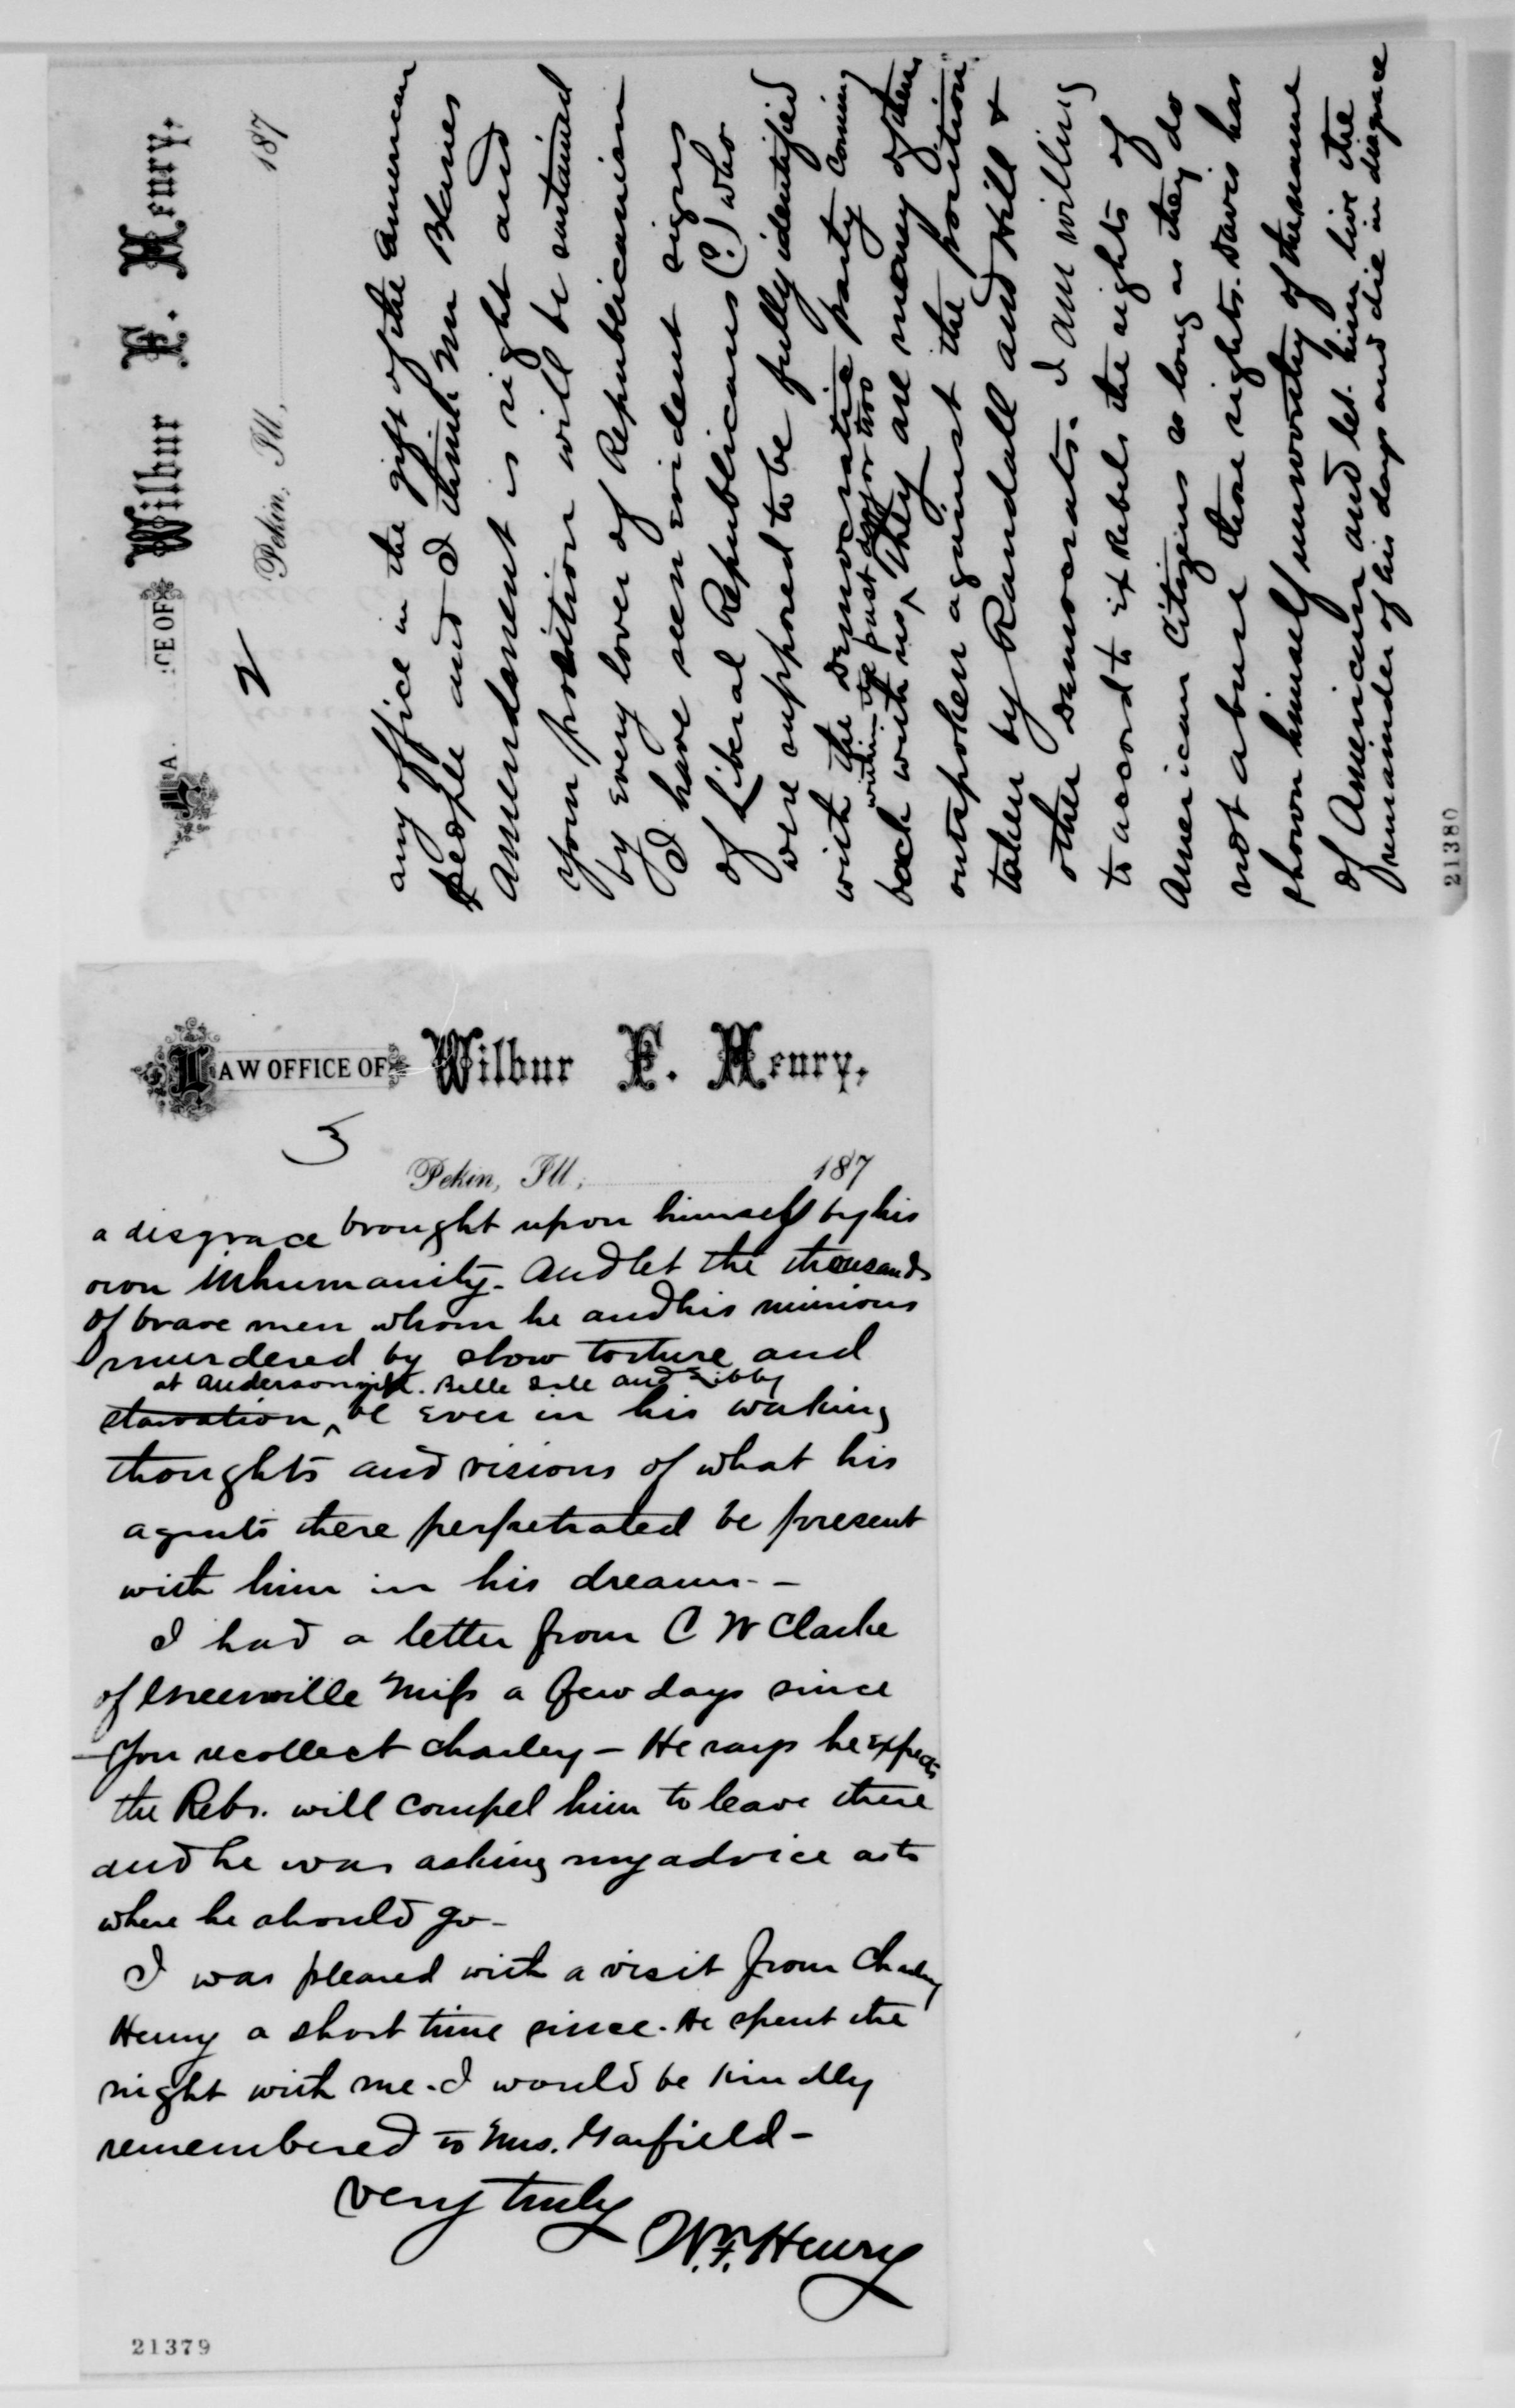 LAW OFFICE OF Wilbur F. Henry,
2
Pekin, Ill, 187
any office in the gift of the American
people and I think Mr Blaines
Amendment is right and
your position will be sustained
by every lover of Republicanism
I have seen evident signs
of Liberal Republicans (?) who
were supposed to be fully identified
with the Democratic party coming
within the past day or two
back with us, They are many of them
outspoken against the position
taken by Randall and Hill &
other Democrats. I am willing
to accord to ex Rebels the rights of
American Citizens as long as they do
not abuse those rights. Davis has
shown himself unworthy of the name
of American and let him live the
remainder of his days and die in disgrace
21380
LAW OFFICE OF Wilbur F. Henry,
3
Pekin, Ill, 187
a disgrace brought upon himself by his
own inhumanity. And let the thousands
of brave men whom he and his minions
murdered by slow torture and
at Andersonville. Belle Isle and Libby
starvation, be ever in his waking
thoughts and visions of what his
agents there perpetrated be present
with him in his dreams. -
I had a letter from C W Clarke
of Greenville Miss a few days since
- You recollect Charley - He says he expects
the Rebs. will compel him to leave there
and he was asking my advice as to
where he should go -
I was pleased with a visit from Charley
Henry a short time since. He spent the
night with me. I would be kindly
remembered to Mrs. Garfield -
Very truly
W. F. Henry
21379